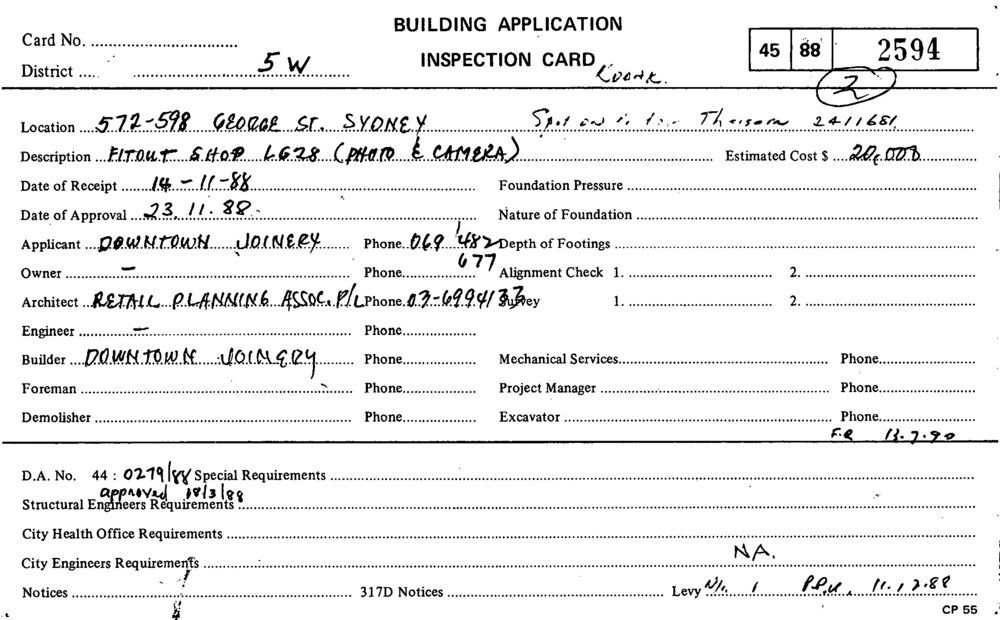 BUILDING APPLICATION
Card No.
INSPECTION CARD
45 88 2594
District 5W
2
Location 572-598 GEORGE ST. SYDNEY 2411681
Description FITOUT SHOP LG28 (PHOTO & CAMERA) Estimated Cost $ 20,000
Date of Receipt 14-11-88 Foundation Pressure
Date of Approval 23.11.88. Nature of Foundation
Applicant DOWNTOWN JOINERY Phone 069 482 Depth of Footings
677
Owner - Phone Alignment Check 1. 2.
Architect RETAIL PLANNING ASSOC. P/L Phone 03-6994133 Survey 1. 2.
Engineer - Phone
Builder DOWNTOWN JOINERY Phone Mechanical Services Phone
Foreman Phone Project Manager Phone
Demolisher Phone Excavator Phone
F.R 13.7.90
D.A. No. 44 : 0279/88 Special Requirements
approved 18/3/88
Structural Engineers Requirements
City Health Office Requirements
NA.
City Engineers Requirements
Notices 317D Notices Levy
CP 55